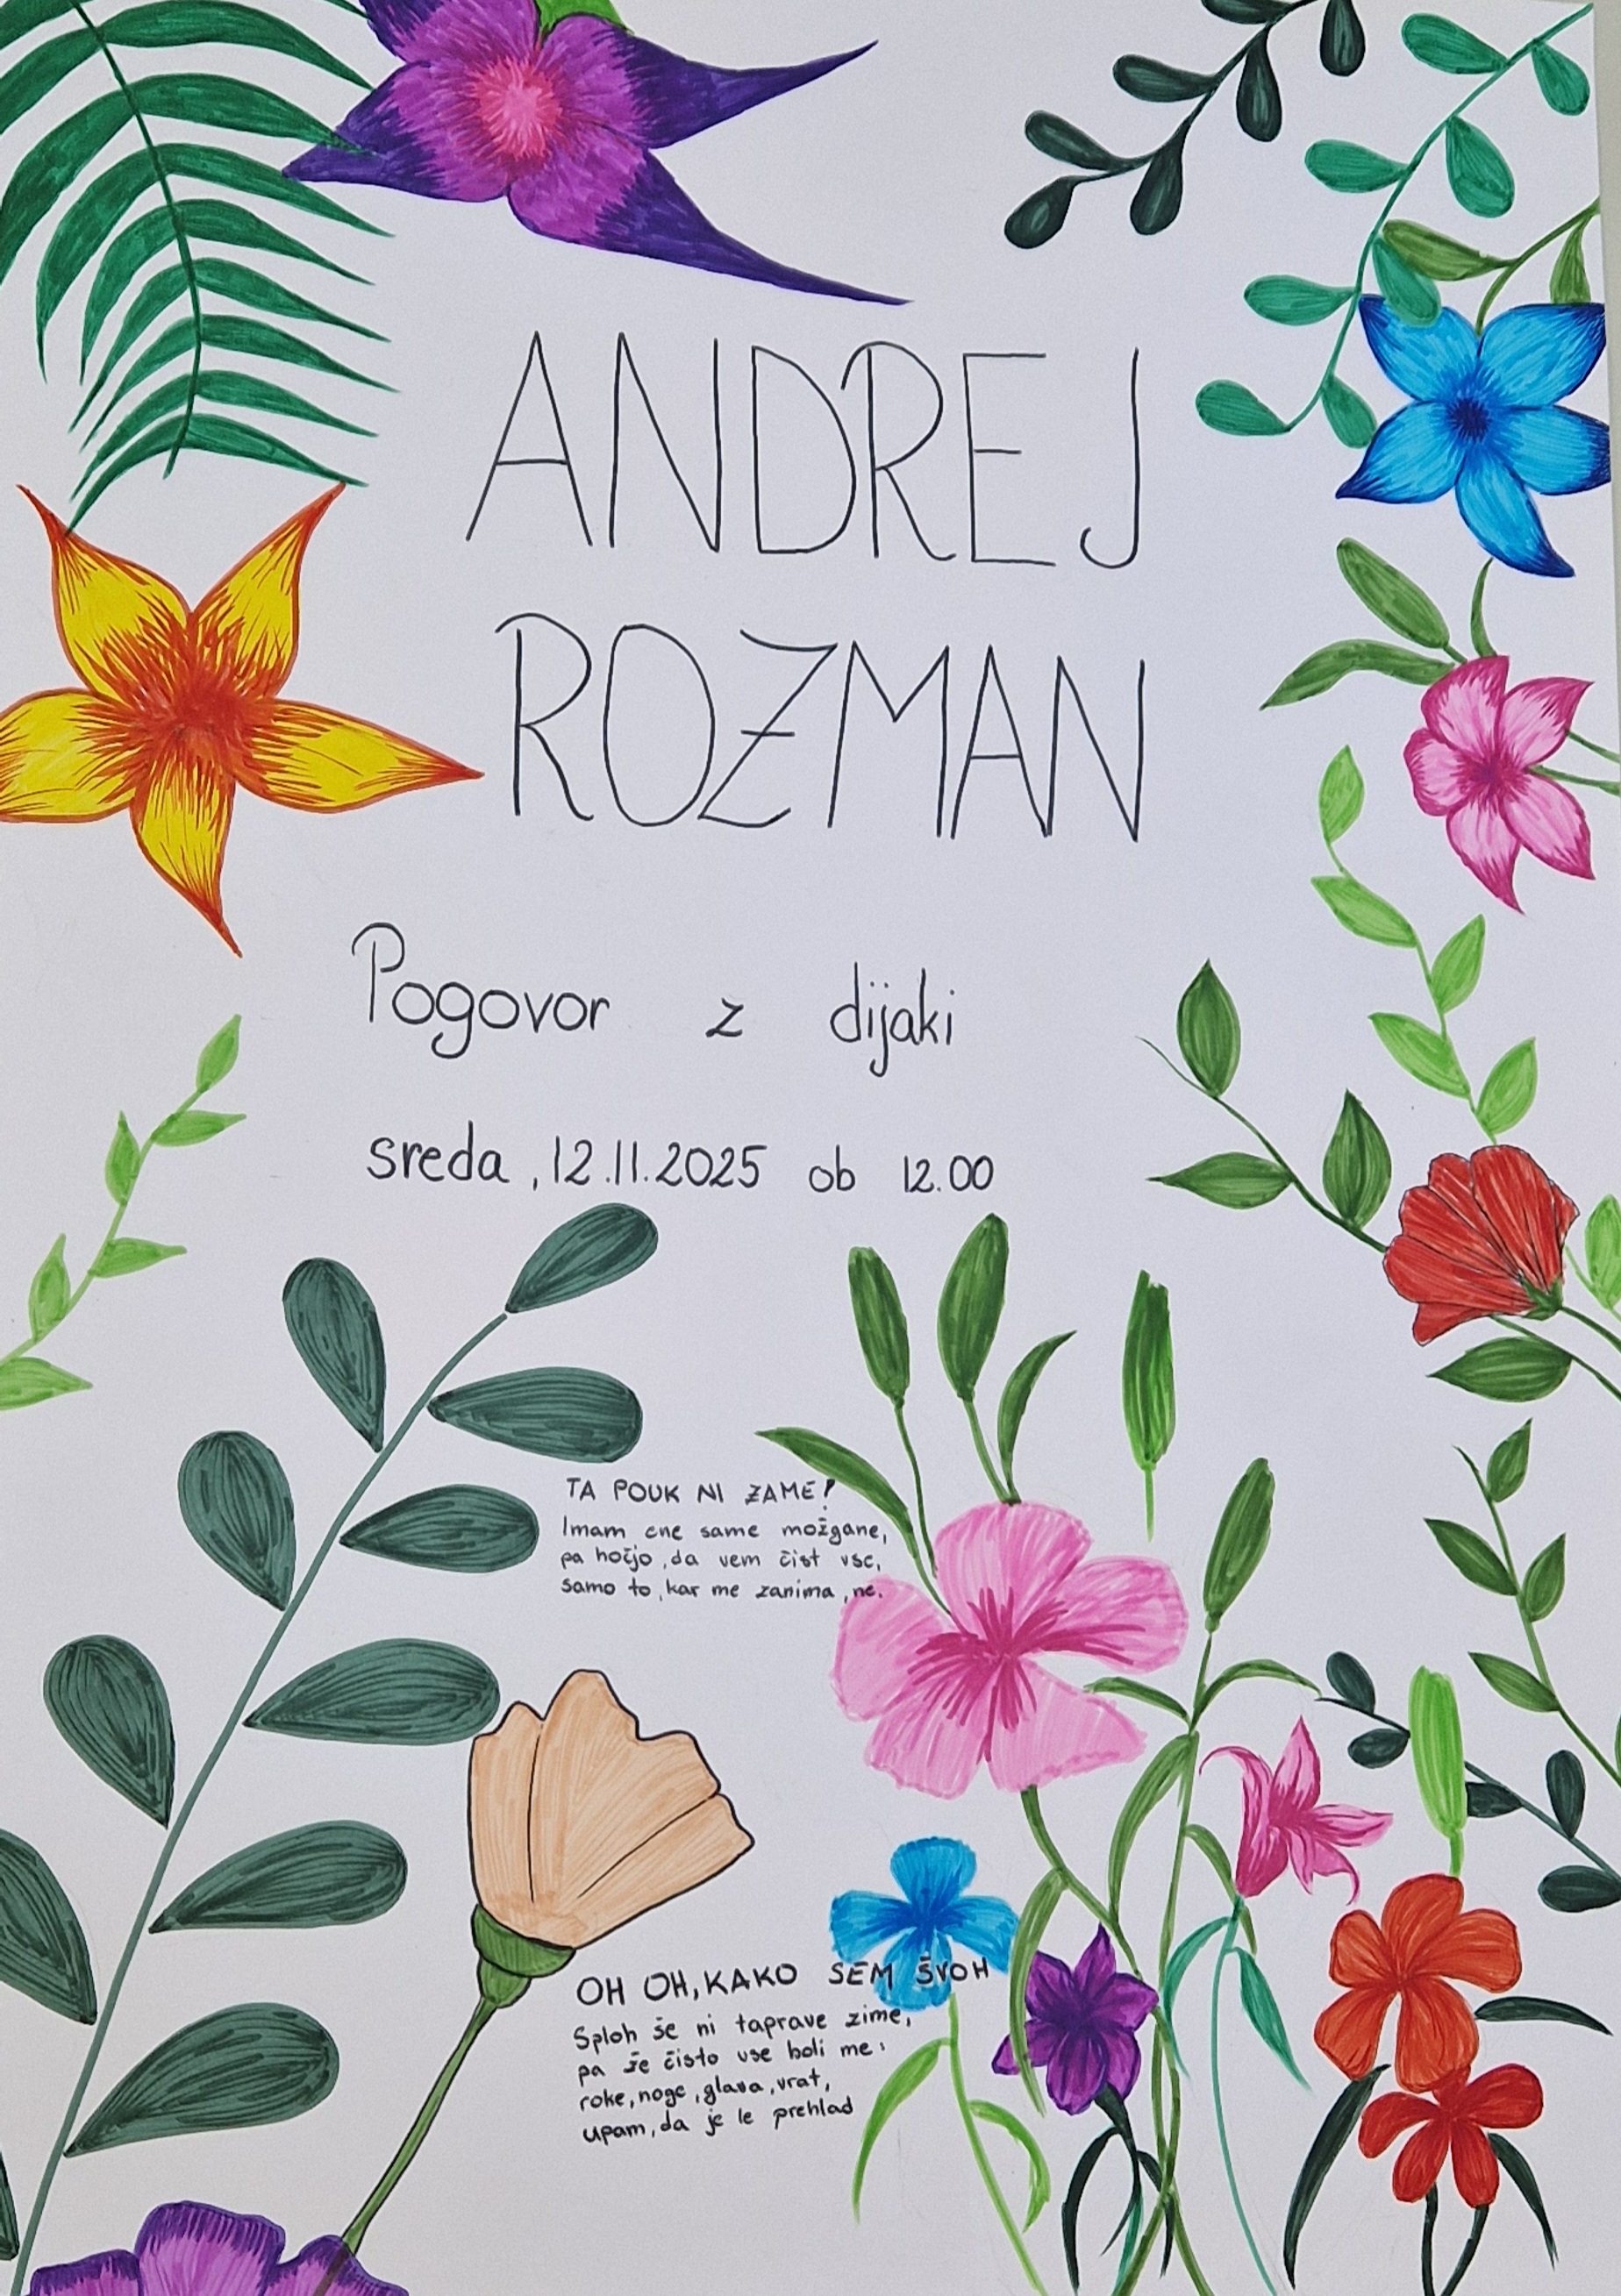 ANDREJ
ROZMAN
Pogovor z dijaki
sreda, 12.11.2025 ob 12.00
TA POUK NI ZAME!
Imam ene same možgane,
pa hočjo, da vem čist vse,
samo to, kar me zanima, ne.
OH OH, KAKO SEM ŠVOH
Sploh še ni taprave zime,
pa že čisto vse boli me:
roke, noge, glava, vrat,
upam, da je le prehlad